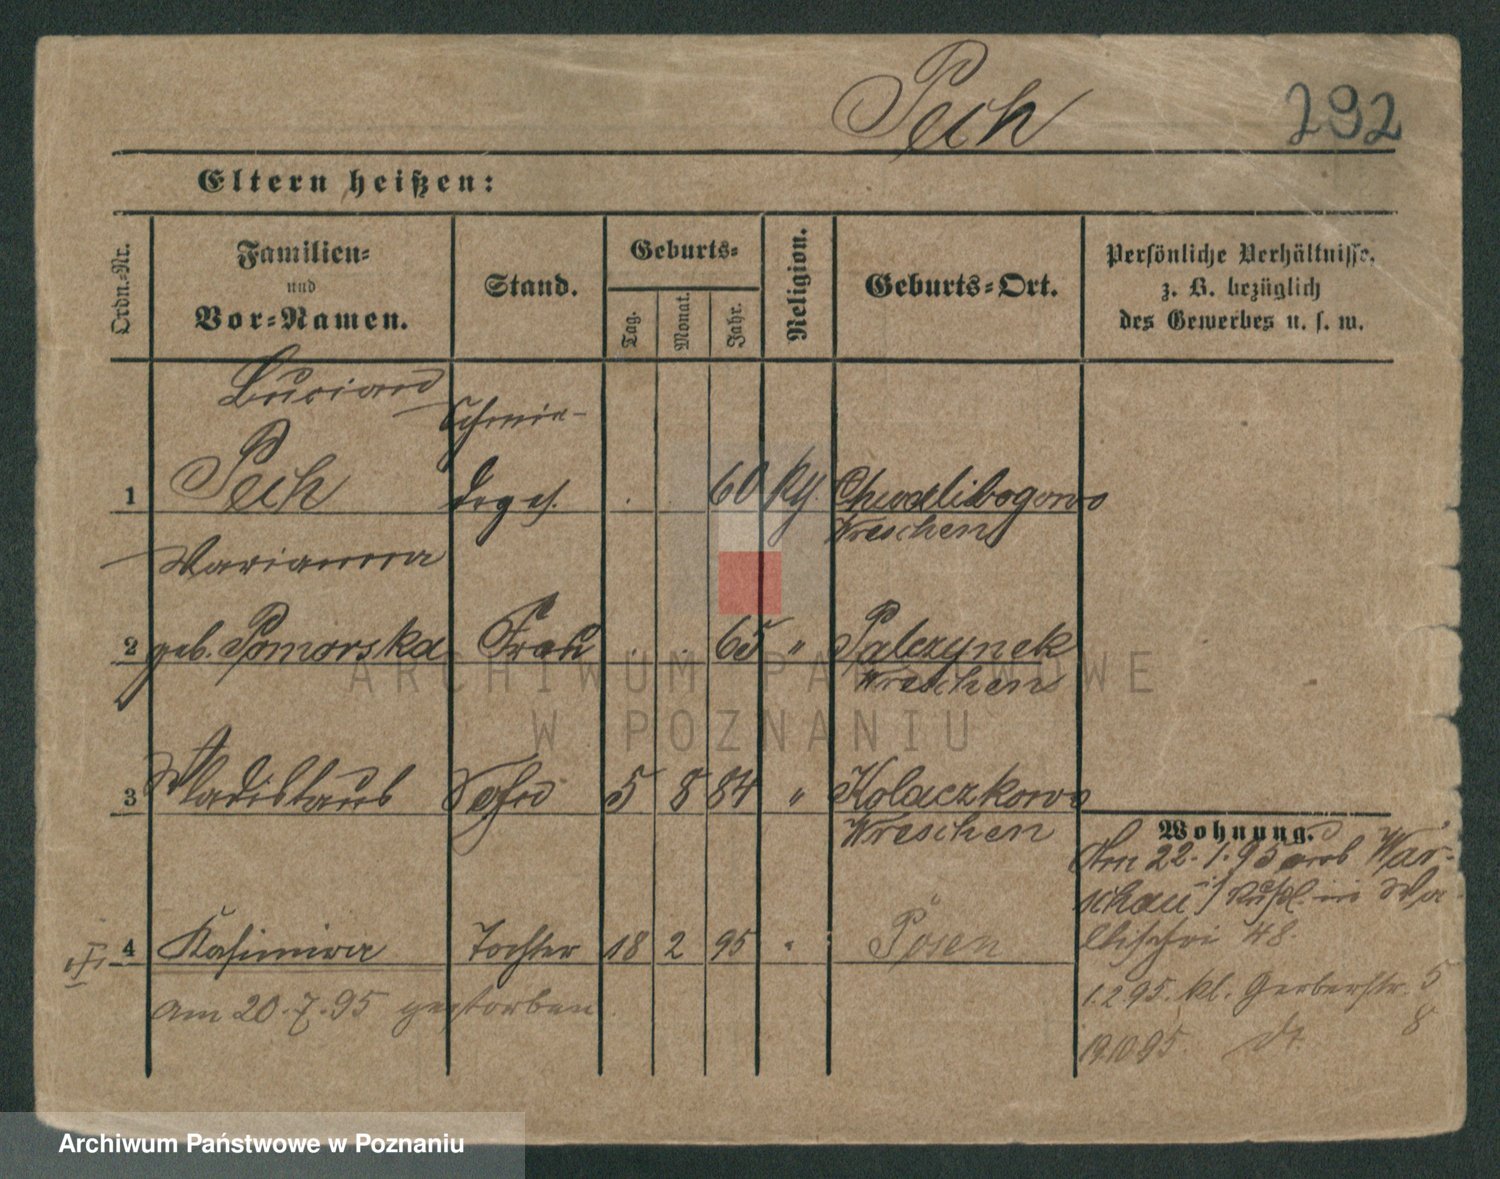 Pech 292
Eltern heißen:
Ordn.-Nr.
Familien-
und
Vor-Namen.
Stand.
Geburts-
Tag.
Monat.
Jahr.
Religion.
Geburts-Ort.
Persönliche Verhältnisse,
z. B. bezüglich
des Gewerbes u. s. w.
Lucian Schmie-
1 Pech deges. 60 kth. Chwalibogowo
Wreschen
Marianna
2 geb. Pomorska Frau 65 " Palczynek
Wreschen
3 Wladislaus Sohn 5 8 84 " Kolaczkowo
Wreschen
Wohnung.
Am 22.1.95 aus War-
schau / Rußl. in Wa-
llischei 48.
4 Kasimira Tochter 18 2 95 " Posen
am 20.7.95 gestorben.
1.2 95. kl. Gerberstr. 5
19.10 95. dt. 8
ARCHIWUM PAŃSTWOWE
W POZNANIU
Archiwum Państwowe w Poznaniu